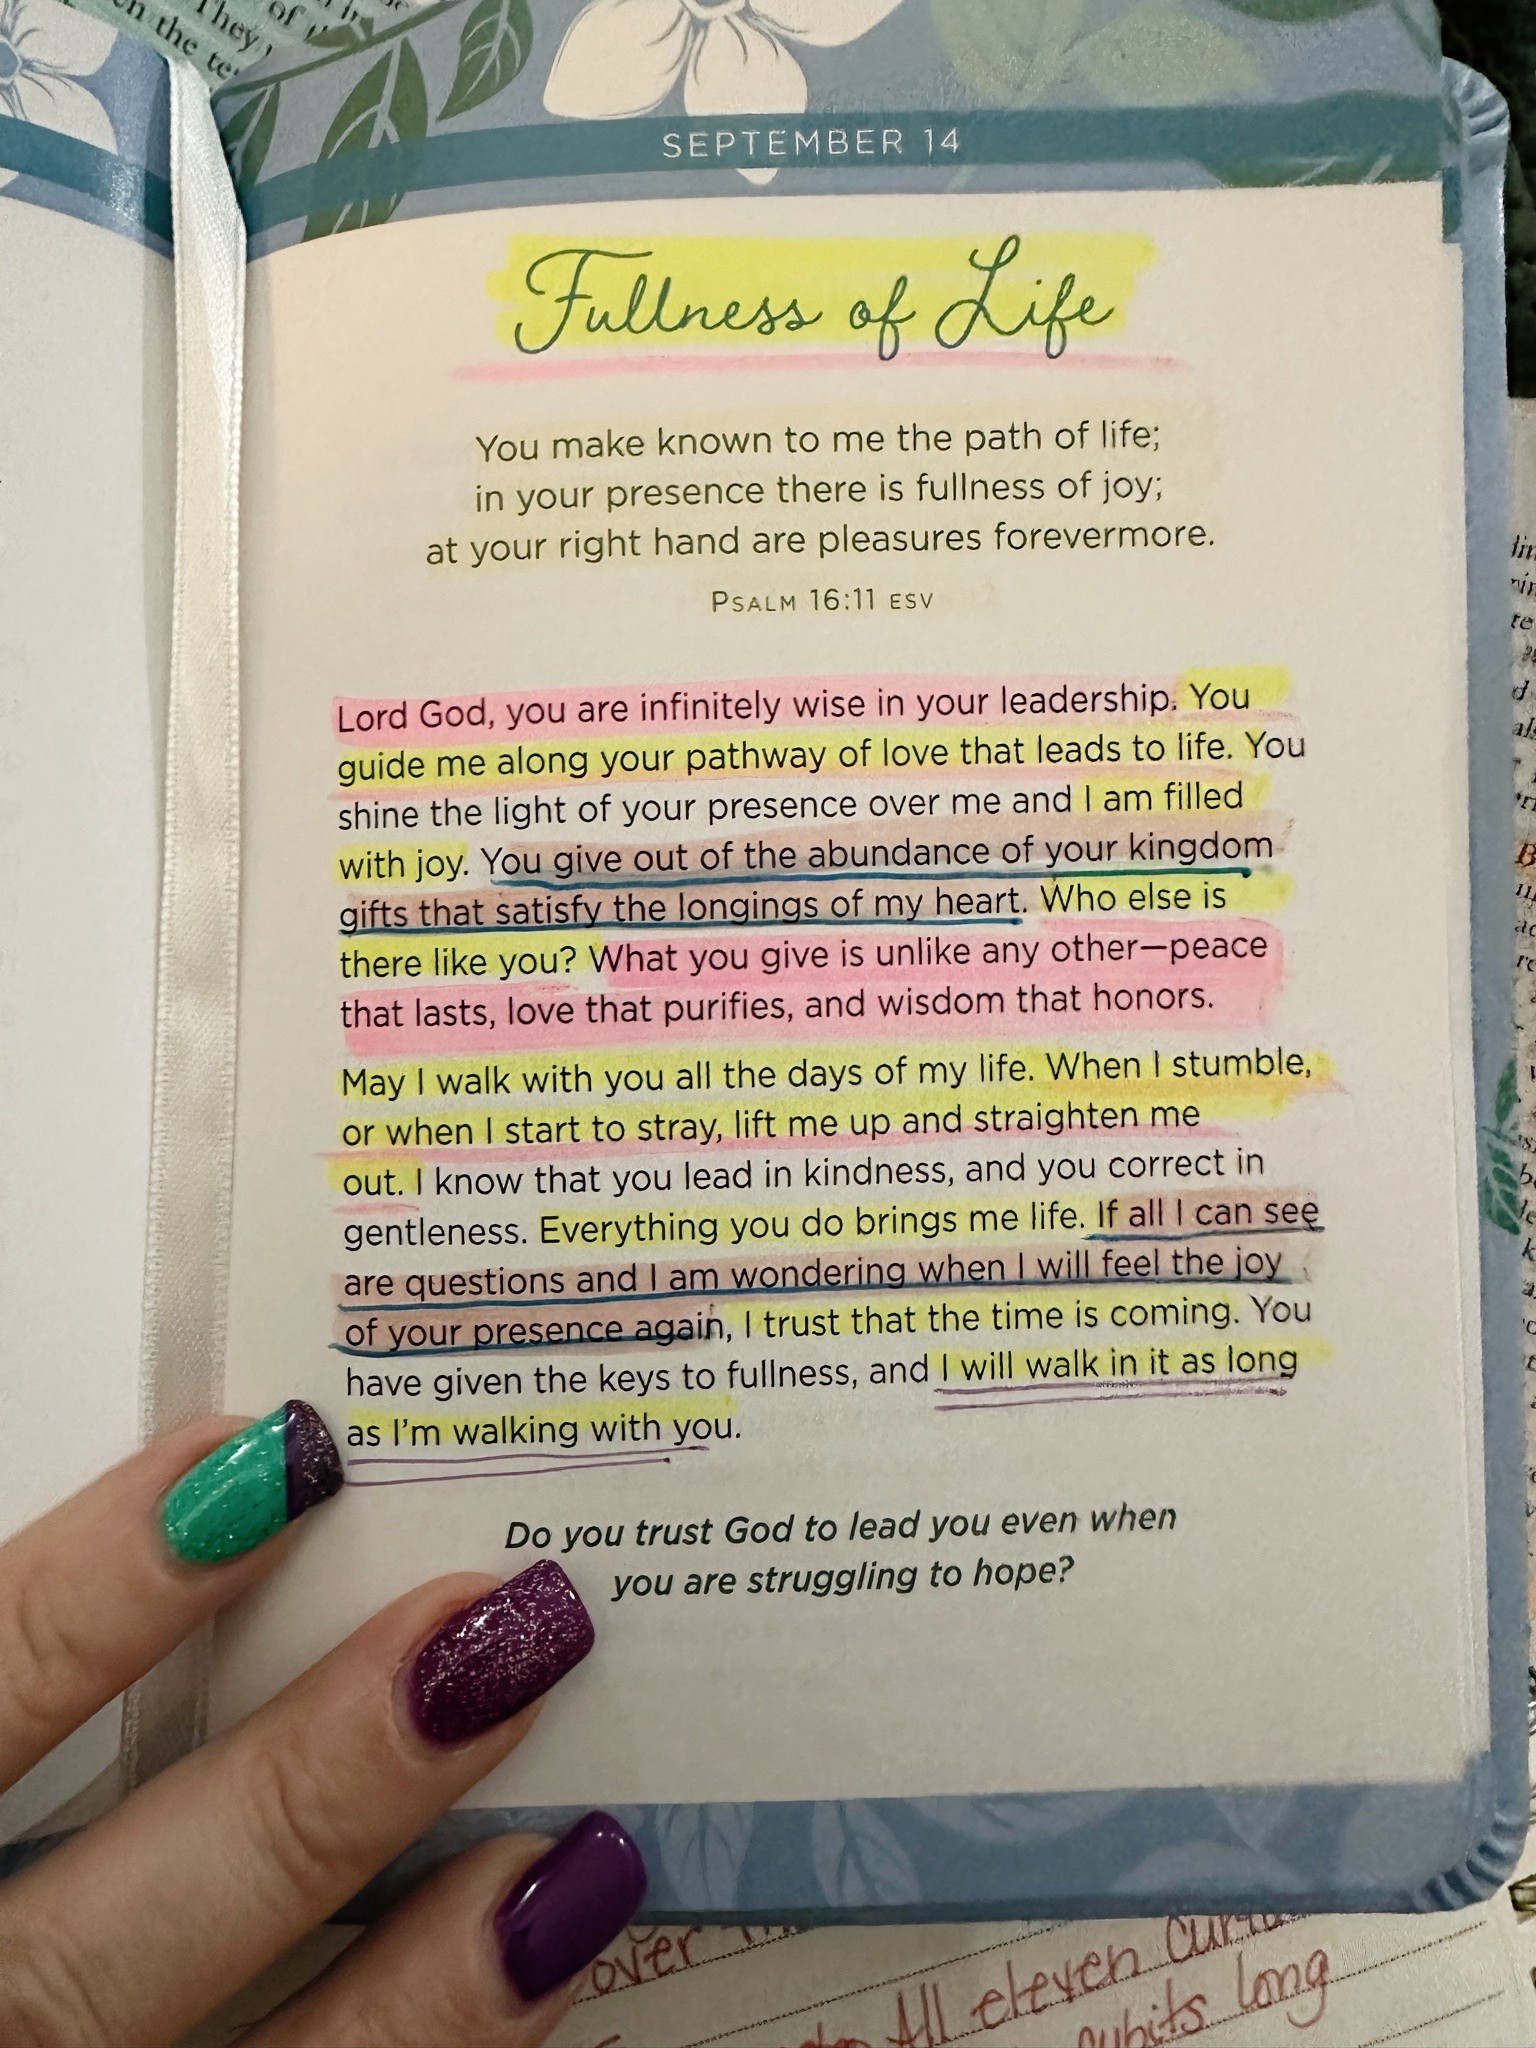 They
of
en the
SEPTEMBER 14
Fullness of Life
You make known to me the path of life;
in your presence there is fullness of joy;
at your right hand are pleasures forevermore.
PSALM 16:11 ESV
Lord God, you are infinitely wise in your leadership. You
guide me along your pathway of love that leads to life. You
shine the light of your presence over me and I am filled
with joy. You give out of the abundance of your kingdom
gifts that satisfy the longings of my heart. Who else is
there like you? What you give is unlike any other—peace
that lasts, love that purifies, and wisdom that honors.
May I walk with you all the days of my life. When I stumble,
or when I start to stray, lift me up and straighten me
out. I know that you lead in kindness, and you correct in
gentleness. Everything you do brings me life. If all I can see
are questions and I am wondering when I will feel the joy
of your presence again, I trust that the time is coming. You
have given the keys to fullness, and I will walk in it as long
as I'm walking with you.
Do you trust God to lead you even when
you are struggling to hope?
over
All eleven
cubits long